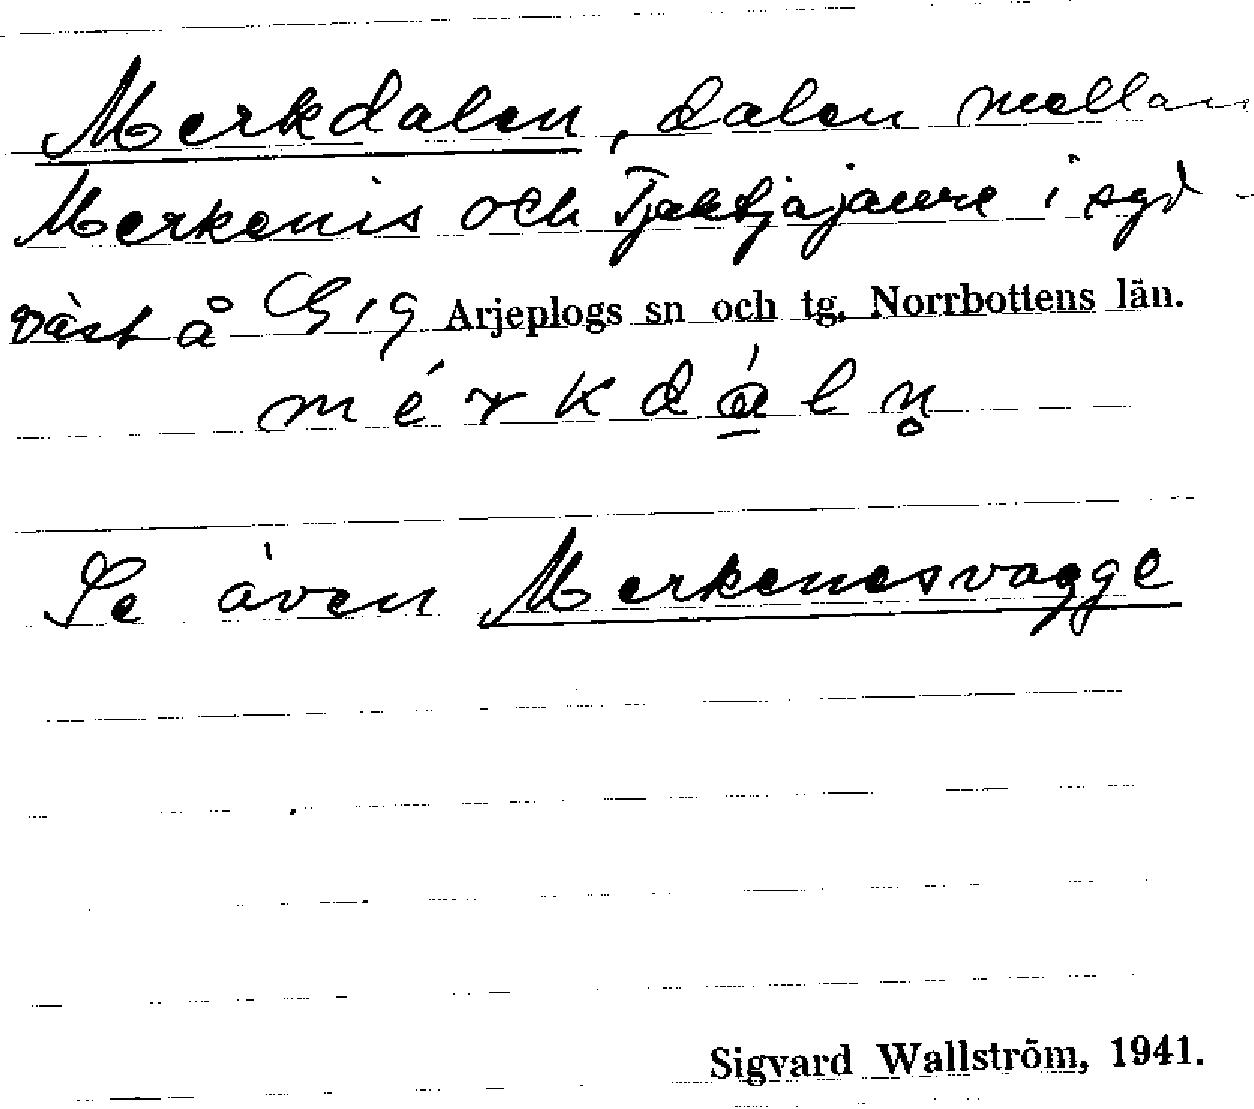 Merkdalen, dalen mellan
Merkenis och Tjaktjajaure i sydväst å G 19 Arjeplogs sn och tg, Norrbottens län.
mérkdáln̥
Se även Merkenesvagge
Sigvard Wallström, 1941.